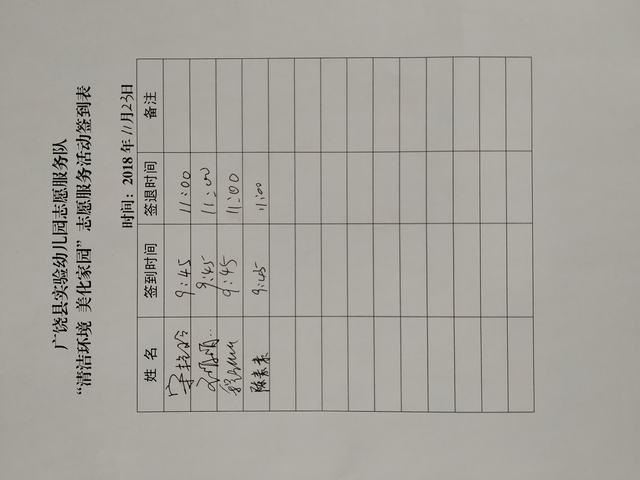 广饶县实验幼儿园志愿服务队
“清洁环境 美化家园”志愿服务活动签到表
时间：2018年11月23日
姓名 签到时间 签退时间 备注
9:45 11:00
9:45 11:00
9:45 11:00
陈素素 9:45 11:00